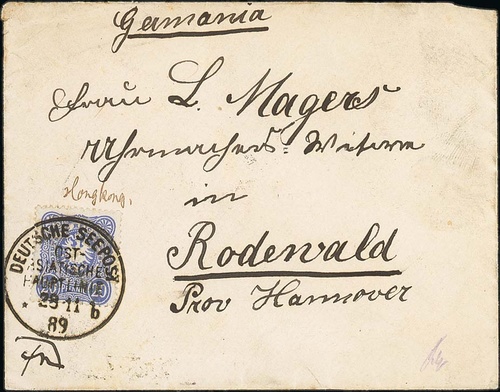 Germania
Frau L. Magers
Uhrmachers=Witwe
Hongkong.
in
Rodewald
Prov Hannover
DEUTSCHE SEEPOST
OST-
ASIATISCHE
HAUPTLINIE
20 PFENNIG
* 29 11 b
89